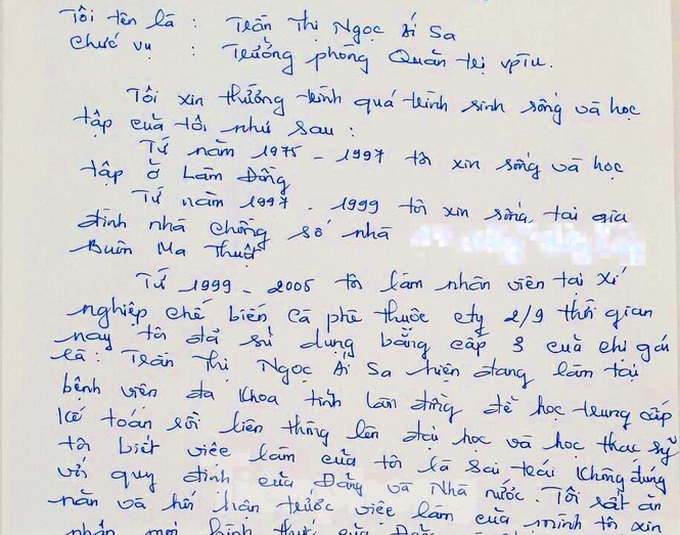 Tôi tên là : Trần Thị Ngọc Ái Sa
Chức vụ : Trưởng phòng Quản trị VPTU.
Tôi xin thưởng trình quá trình sinh sống và học
tập của tôi như sau :
Từ năm 1975 - 1997 tôi xin sống và học
tập ở Lâm Đồng
Từ năm 1997 - 1999 tôi xin sống tại gia
đình nhà chồng số nhà
Buôn Ma Thuột
Từ 1999 - 2005 tôi làm nhân viên tại xí
nghiệp chế biến cà phê thuộc cty 2/9 thời gian
này tôi đã sử dụng bằng cấp 3 của chị gái
là : Trần Thị Ngọc Ái Sa hiện đang làm tại
bệnh viện đa khoa tỉnh Lâm đồng để học trung cấp
kế toán rồi liên thông lên đại học và học thạc sỹ
tôi biết việc làm của tôi là sai trái không đúng
với quy định của Đảng và Nhà nước. Tôi rất ăn
năn và hối hận trước việc làm của mình tôi xin
nhận mọi hình thức của